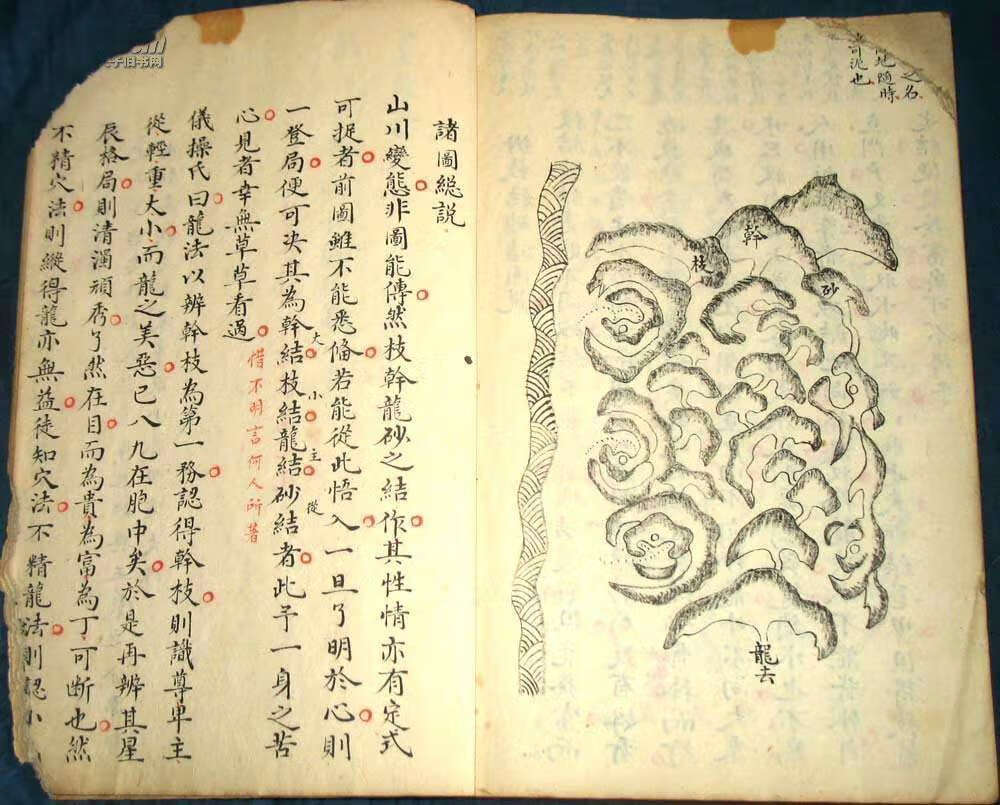 之名
地隨時
可泥也
幹
枝
砂
龍去
諸圖総説
山川變態非圖能傳然枝幹龍砂之結作其性情亦有定式
可捉者前圖雖不能悉俻若能從此悟入一旦了明於心則
一登局便可决其為幹結枝結龍結砂結者此予一身之苦
大
小
主
從
心見者幸無草草看過
惜不明言何人所著
儀操氏曰龍法以辨幹枝為第一務認得幹枝則識尊卑主
從輕重大小而龍之美惡已八九在胞中矣於是再辨其星
辰格局則清濁頑秀了然在目而為貴為富為丁可断也然
不精穴法則縱得龍亦無益徒知穴法不精龍法則認小